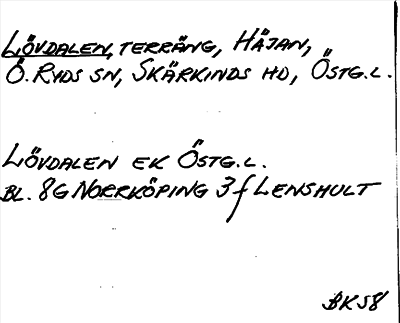 LÖVDALEN, TERRÄNG, HÅJAN,
Ö. RYDS SN, SKÄRKINDS HD, ÖSTG.L.
LÖVDALEN EK ÖSTG.L.
BL. 8G NORRKÖPING 3f LENSHULT
BK58